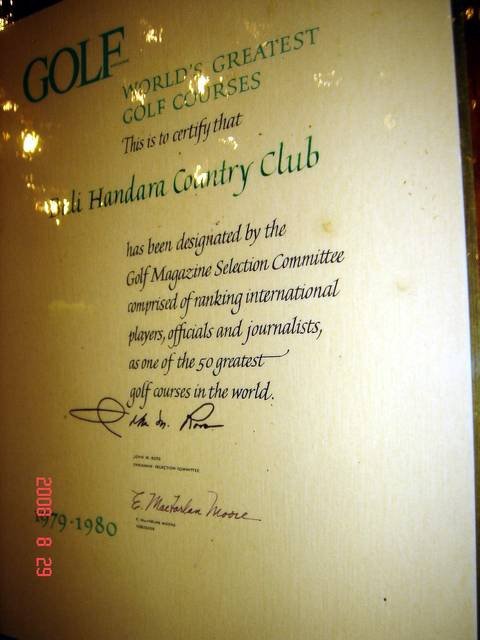 GOLF
WORLD'S GREATEST
GOLF COURSES
This is to certify that
Bali Handara Country Club
has been designated by the
Golf Magazine Selection Committee
comprised of ranking international
players, officials and journalists,
as one of the 50 greatest
golf courses in the world.
John M. Ross
JOHN M. ROSS
CHAIRMAN · SELECTION COMMITTEE
E. MacFarlan Moore
E. MacFARLAN MOORE
1979·1980
2008 8 29